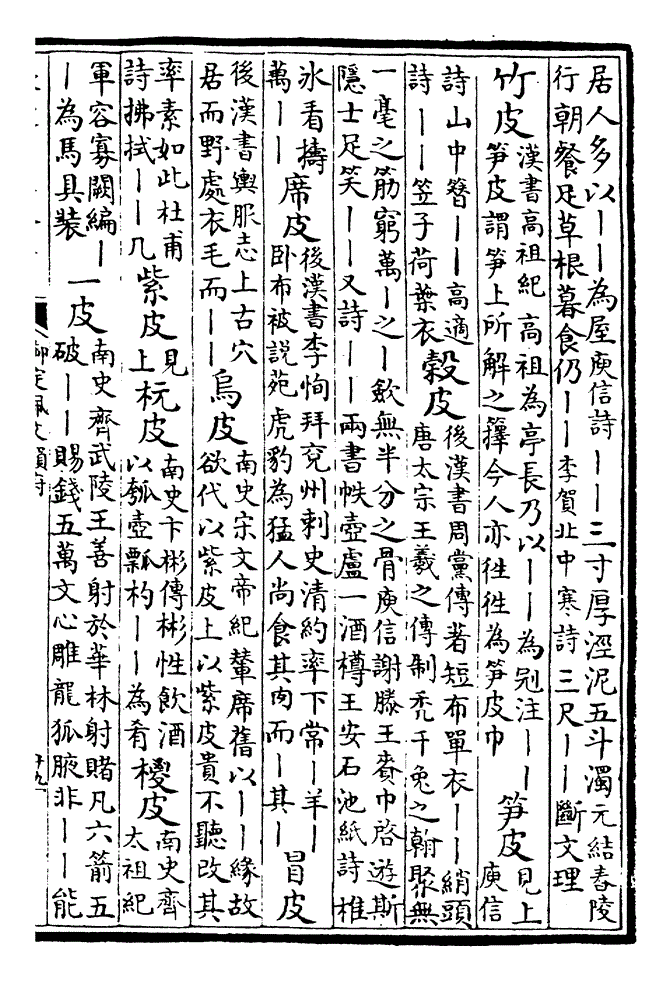 居人多以――為屋庾信詩――三寸厚涇泥五斗濁元結舂陵
行朝餐足草根暮食仍――李賀北中寒詩三尺――斷文理
竹皮
漢書高祖紀高祖為亭長乃以――為冠注――
筍皮謂筍上所解之籜今人亦往往為筍皮巾
筍皮
見上
庾信
詩山中簪――高適
詩――笠子荷葉衣
榖皮
後漢書周黨傳著短布單衣――綃頭
唐太宗王羲之傳制禿千兔之翰聚無
一毫之筋窮萬―之―歛無半分之骨庾信謝滕王賚巾啓遊斯
隱士足笑――又詩――兩書帙壺盧一酒樽王安石池紙詩椎
氷看擣
萬――
席皮
後漢書李恂拜兖州刺史清約率下常―羊―
卧布被説苑虎豹為猛人尚食其肉而―其―
冒皮
後漢書輿服志上古穴
居而野處衣毛而――
烏皮
南史宋文帝紀輦席舊以――緣故
欲代以紫皮上以紫皮貴不聽改其
率素如此杜甫
詩拂拭――几
紫皮
見
上
杬皮
南史卞彬傳彬性飲酒
以瓠壺瓢杓――為肴
㯶皮
南史齊
太祖紀
軍容寡闕編―
―為馬具装
一皮
南史齊武陵王善射於華林射賭凡六箭五
破――賜錢五萬文心雕龍狐腋非――能